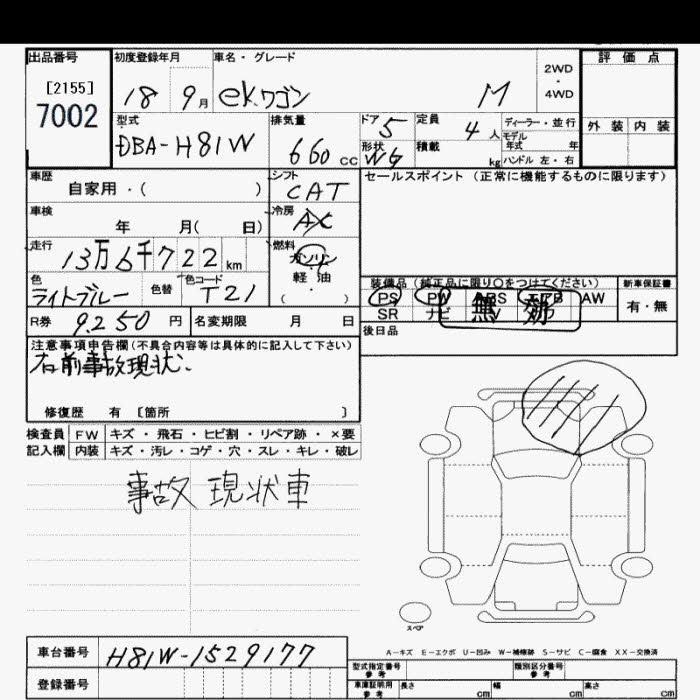 出品番号 初度登録年月 車名・グレード 2WD・4WD 評価点
[2155]
7002
18 9月 ekワゴン M
型式 排気量 ドア 定員 ディーラー・並行 外装 内装
DBA-H81W 660 cc 5 4人 モデル年式 年
形状 積載 kg ハンドル 左・右
WG
車歴 シフト セールスポイント (正常に機能するものに限ります)
自家用・( ) CAT
車検 冷房
年 月( 日) AC
走行 燃料
13万6千722km ガソリン・軽油
( )
色 色替 色コード 装備品 (純正品に限り○をつけてください) 新車保証書
ライトブルー T21 PS PW ABS エアB AW 有・無
SR ナビ TV カワ
R券 9.250円 名変期限 月 日 後日品
注意事項申告欄(不具合内容等は具体的に記入して下さい)
右前事故現状.
修復歴 有 [箇所 ]
検査員 FW キズ・飛石・ヒビ割・リペア跡・×要
記入欄 内装 キズ・汚レ・コゲ・穴・スレ・キレ・破レ
事故現状車
スペア
A-キズ E-エクボ U-凹み W-補修跡 S-サビ C-腐食 XX-交換済
車台番号 H81W-1529177
型式指定番号 参考 類別区分番号 参考
登録番号 車庫証明用 参考 長さ cm 幅 cm 高さ cm